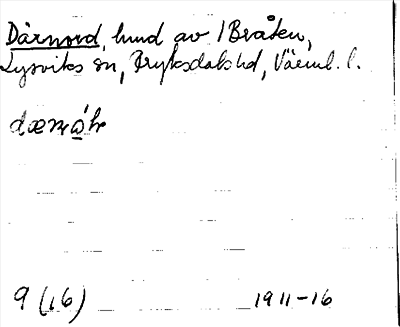 Därnord, hemd av 1 Bråten,
Lysviks sn, Fryksdals hd, Värml. l.
dærnὼɽ
9 (16) 1911-16